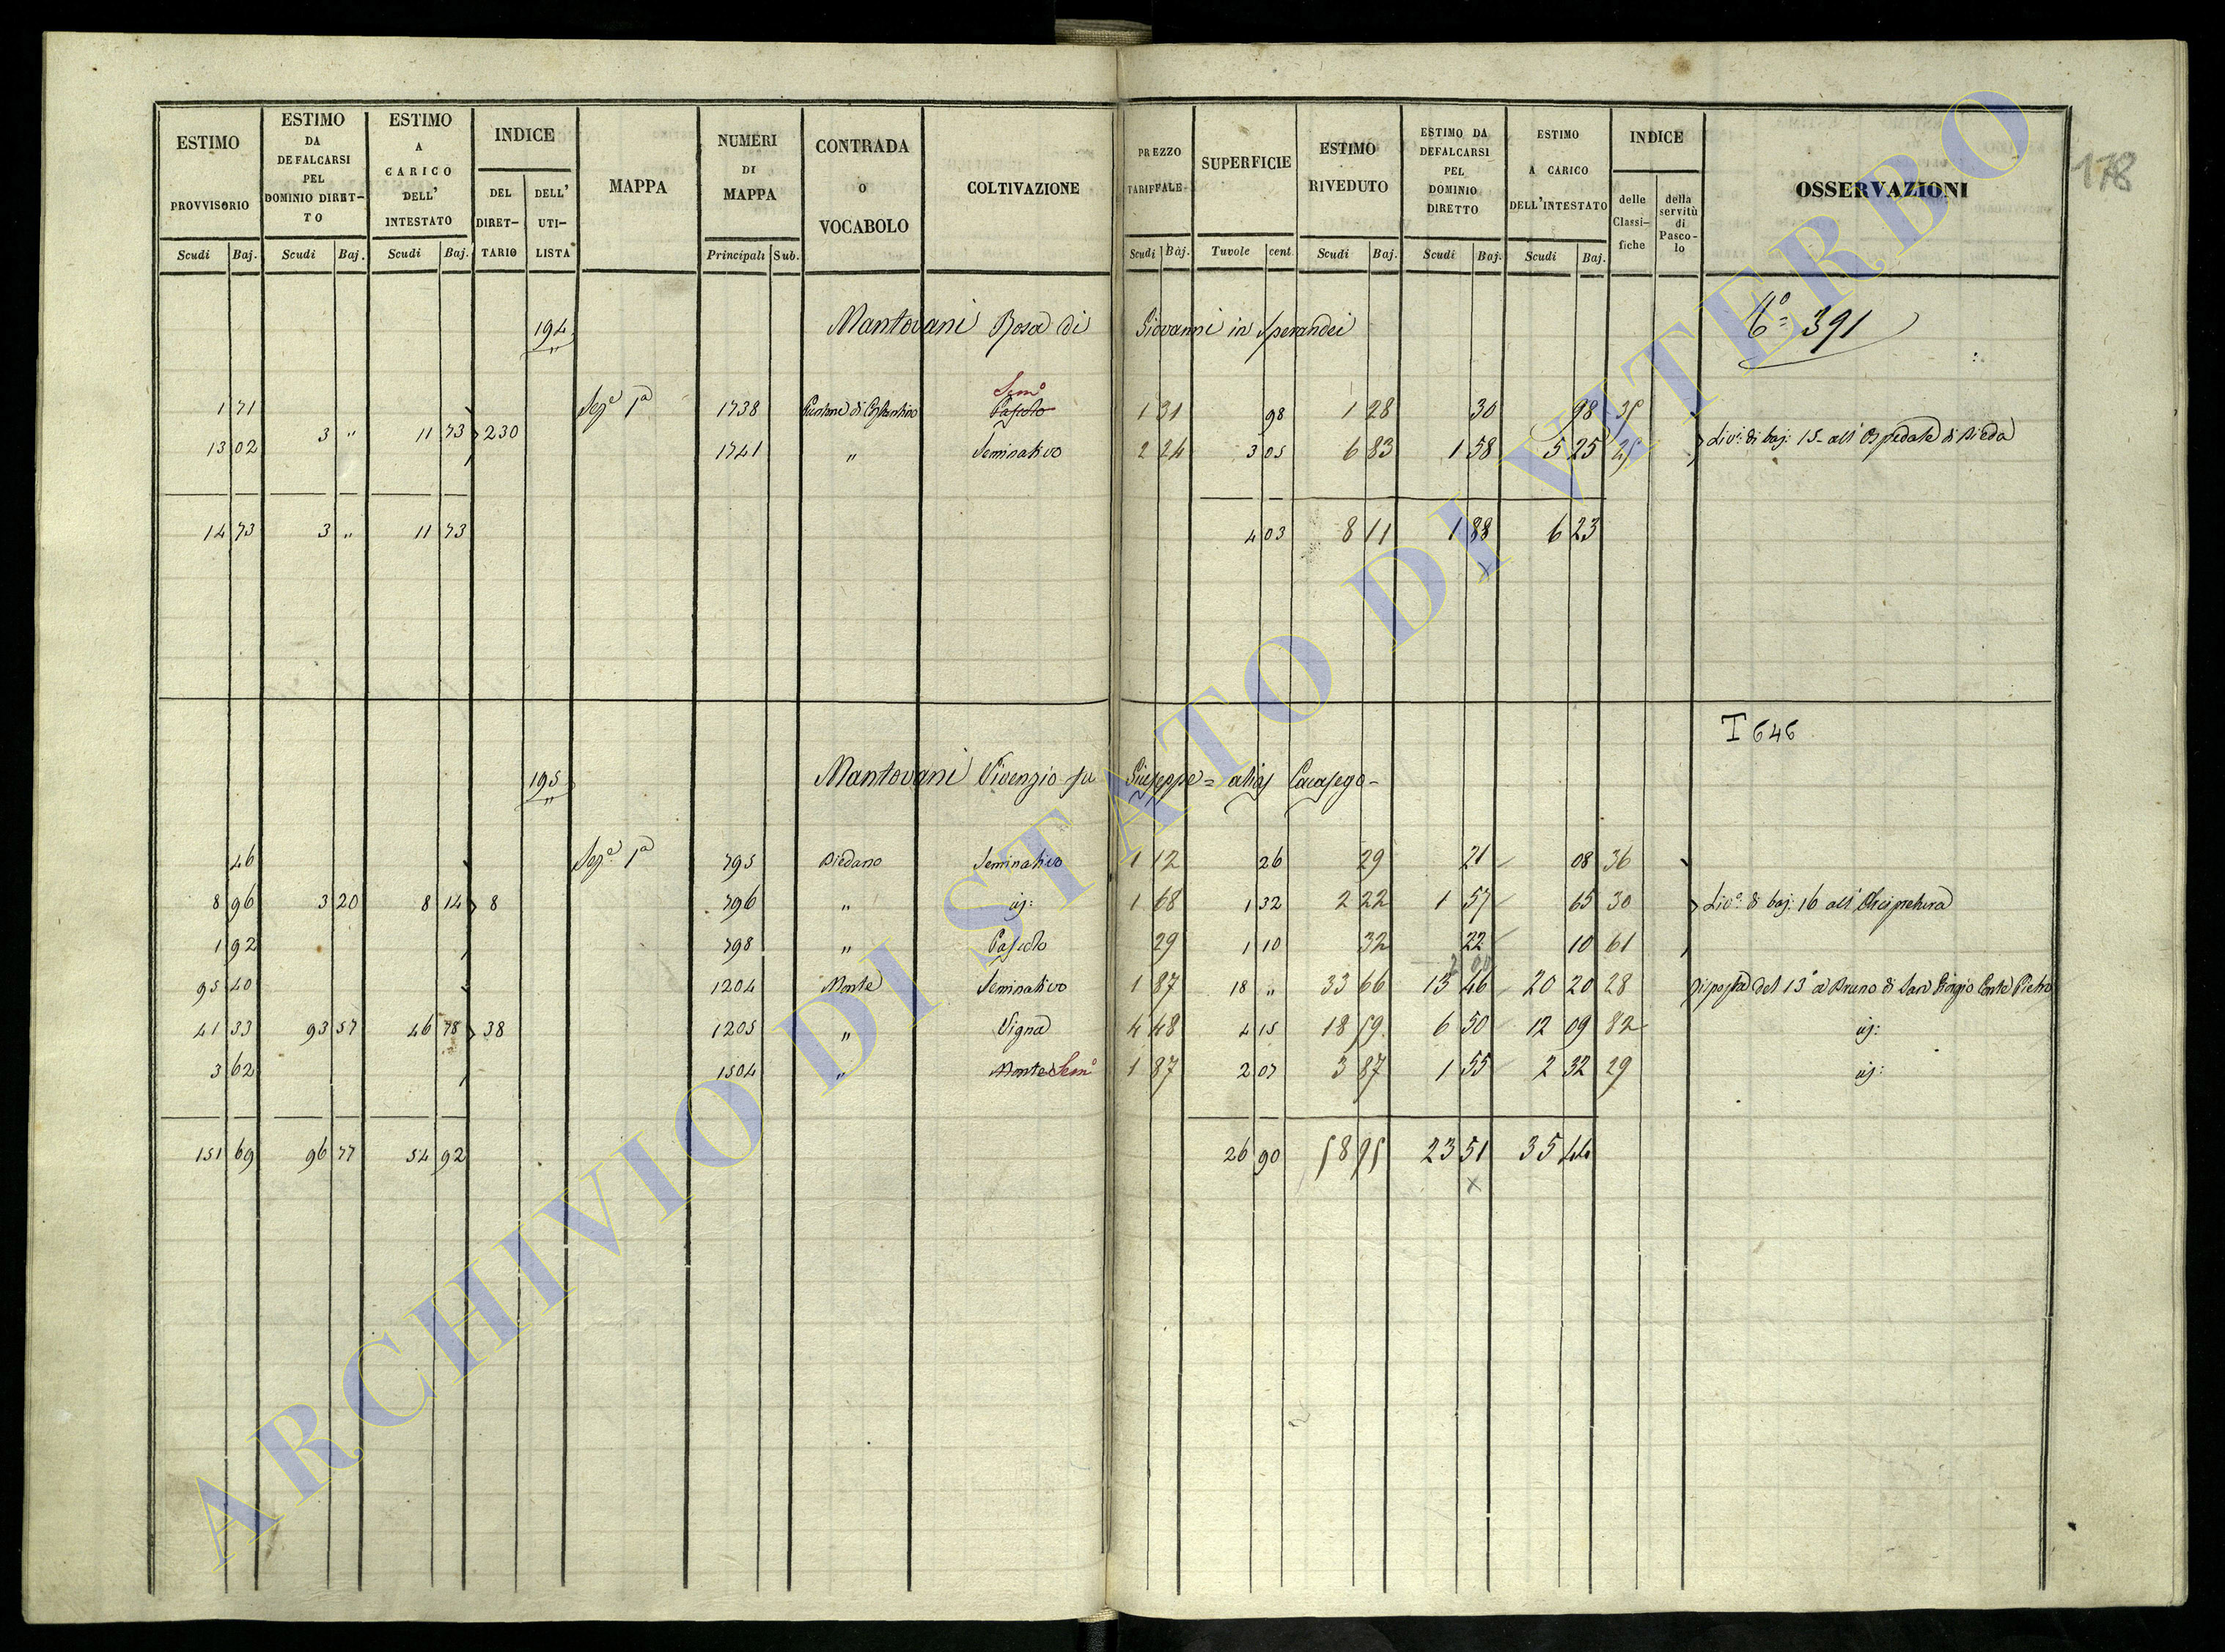 178
ESTIMO PROVVISORIO
ESTIMO DA DEFALCARSI PEL DOMINIO DIRETTO
ESTIMO A CARICO DELL' INTESTATO
INDICE
DEL DIRETTARIO
DELL' UTILISTA
MAPPA
NUMERI DI MAPPA
CONTRADA O VOCABOLO
COLTIVAZIONE
PREZZO TARIFFALE
SUPERFICIE
ESTIMO RIVEDUTO
ESTIMO DA DEFALCARSI PEL DOMINIO DIRETTO
ESTIMO A CARICO DELL'INTESTATO
INDICE
delle Classifiche
della servitù di Pascolo
OSSERVAZIONI
Scudi Baj. Scudi Baj. Scudi Baj. Principali Sub. Scudi Baj. Tavole cent. Scudi Baj. Scudi Baj. Scudi Baj.
194 Mantovani Rosa di Giovanni in Sperandei 391
Semo
1 71 Sezе 1a 1738 Pascolo 1 31 98 1 28 30 98 35
3 " 11 73 230 Livo: di baj: 15 all' Ospedale di Bieda
13 02 1741 " Seminativo 2 24 3 05 6 83 1 58 5 25 25
14 73 3 " 11 73 4 03 8 11 1 88 6 23
T 646
195 Mantovani Vivenzio fu Giuseppe = alias Cacasego
46 Sezе 1a 795 Biedano Seminativo 1 12 26 29 21 08 36
8 96 3 20 8 14 8 796 " id: 1 68 1 32 2 22 1 57 65 30 Livo: di baj: 16 all' Arcipretura
1 92 798 " Pascolo 29 1 10 32 22 10 61
95 40 1204 Monte Seminativo 1 87 18 " 33 66 13 46 20 20 28 Risposta del 13o a Bruno di San Giorgio Conte Pietro
41 33 93 57 46 78 38 1205 " Vigna 4 48 4 15 18 59 6 50 12 09 82 id:
3 62 1504 " Monte Semo 1 87 2 07 3 87 1 55 2 32 29 id:
151 69 96 77 54 92 26 90 58 95 23 51 35 44
ARCHIVIO DI STATO DI VITERBO